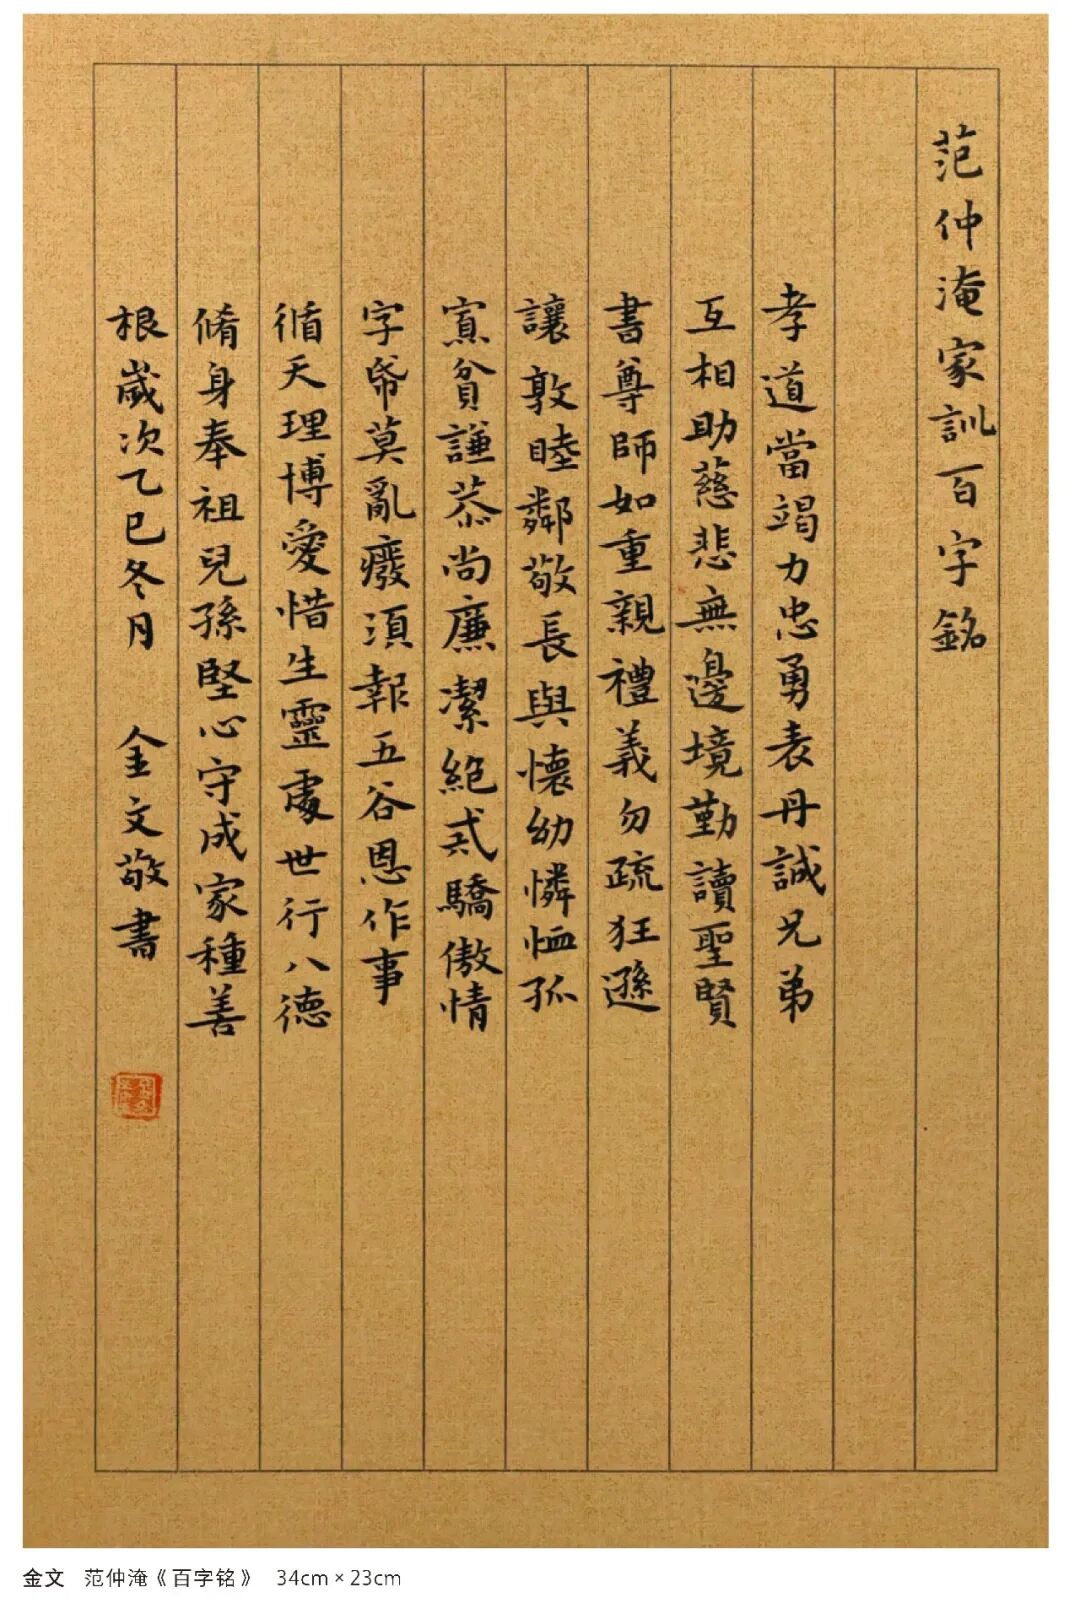 范仲淹家訓百字銘
孝道當竭力忠勇表丹誠兄弟
互相助慈悲無邊境勤讀聖賢
書尊師如重親禮義勿疏狂遜
讓敦睦鄰敬長與懷幼憐恤孤
寡貧謙恭尚廉潔絕戒驕傲情
字帋莫亂廢須報五谷恩作事
循天理博愛惜生靈處世行八德
脩身奉祖兒孫堅心守成家種善
根歲次乙巳冬月 金文敬書
金文 范仲淹《百字铭》 34cm×23cm